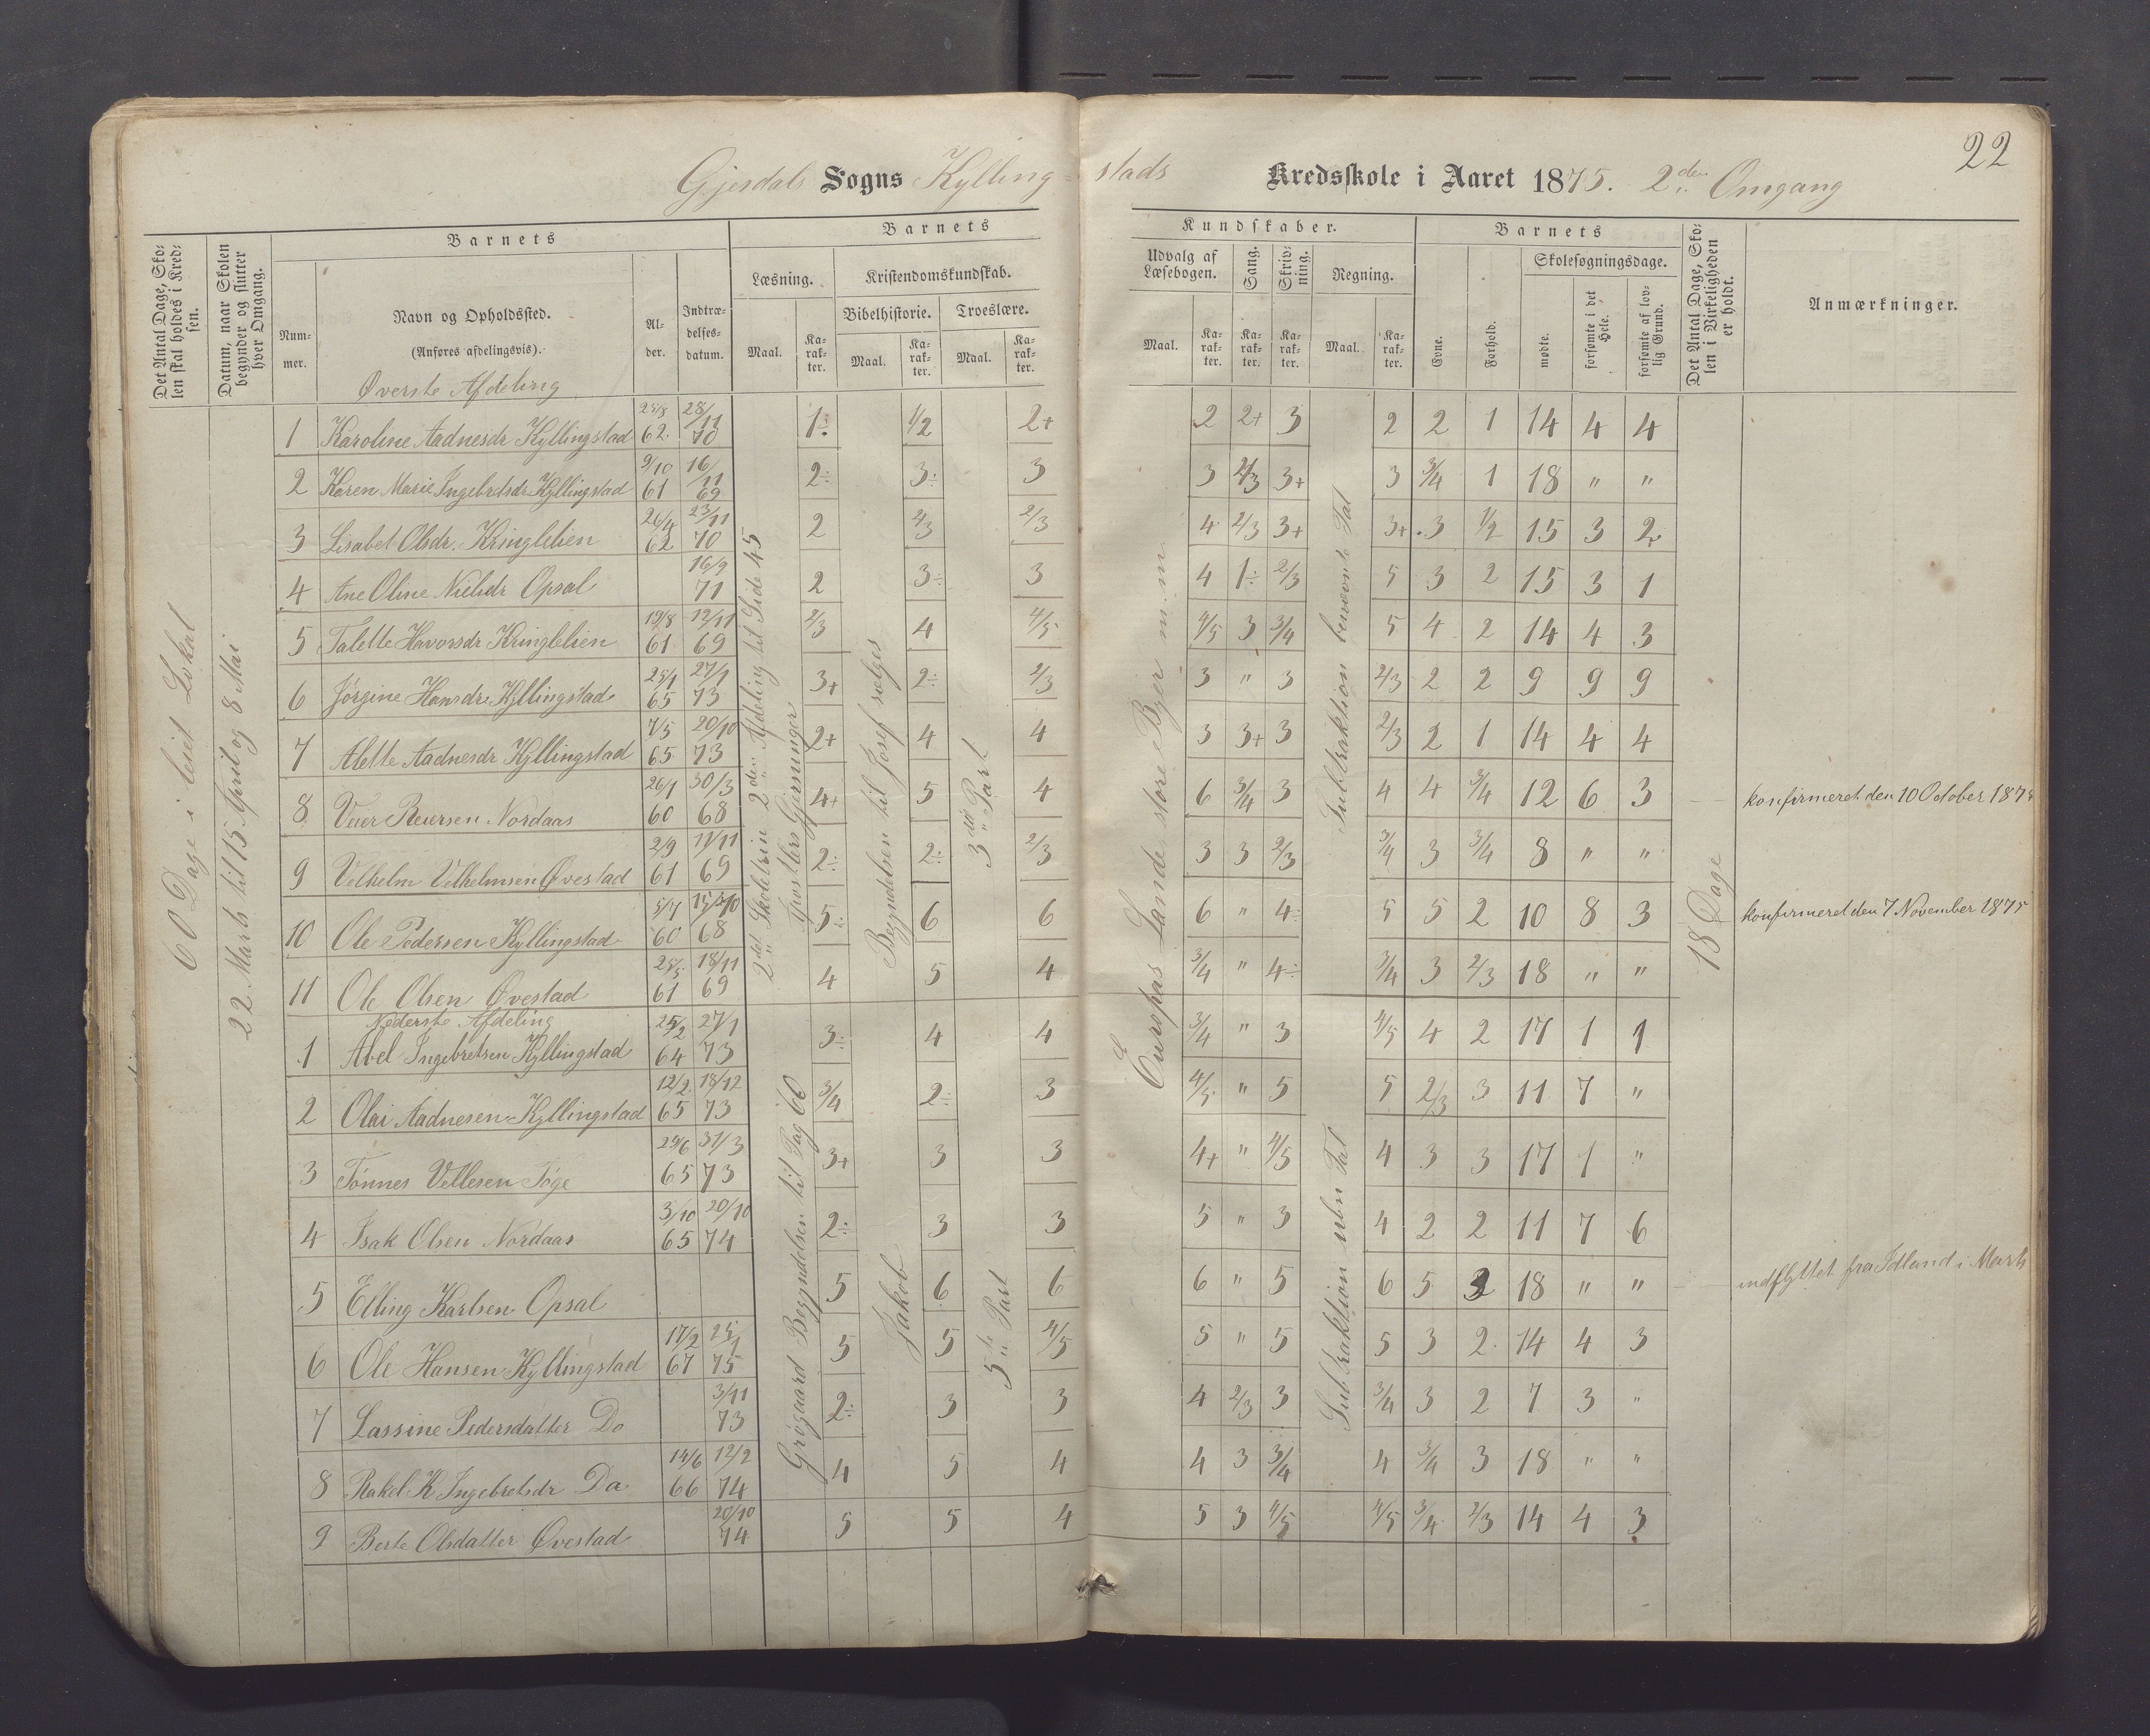 22
Gjesdals Sogns Kylling-stads Kredsskole i Aaret 1875. 2den Omgang
Det Antal Dage, Skolen skal holdes i Kredsen.
Datum, naar Skolen begynder og slutter hver Omgang.
Barnets
Nummer.
Navn og Opholdssted.
(Anføres afdelingsvis).
Alder.
Indtrædelsesdatum.
Barnets Kundskaber.
Læsning.
Maal.
Karakter.
Kristendomskundskab.
Bibelhistorie.
Maal.
Karakter.
Troeslære.
Maal.
Karakter.
Udvalg af Læsebogen.
Maal.
Karakter.
Sang.
Karakter.
Skrivning.
Karakter.
Regning.
Maal.
Karakter.
Barnets
Evne.
Forhold.
Skolesøgningsdage.
mødte.
forsømte i det Hele.
forsømte af lovlig Grund.
Det Antal Dage, Skolen i Virkeligheden er holdt.
Anmærkninger.
60 Dage i leiet Lokal
22 Marts til 15 April og 8 Mai
2det Skoletrin 2den Afdeling til Side 45
Apostlers Gjerninger
Begyndelsen til Josef sælges
3die Part
Europas Lande store Byer m. m.
Subtraktion benevnte Tal
18 Dage
Øverste Afdeling
1 Karoline Aadnesdr Kyllingstad 25/8 62. 28/11 70 1÷ 1/2 2+ 2 2+ 3 2 2 1 14 4 4
2 Karen Marie Ingebretsdr Kyllingstad 9/10 61 16/11 69 2÷ 3÷ 3 3 2/3 3+ 3 3/4 1 18 " "
3 Lisabet Olsdr. Kringlelien 26/4 62 23/11 70 2 2/3 2/3 4 2/3 3+ 3+ 3 1/2 15 3 2
4 Ane Oline Nielsdr Opsal 16/9 71 2 3÷ 3 4 1÷ 2/3 5 3 2 15 3 1
5 Talette Havorsdr Kringlelien 19/8 61 12/11 69 2/3 4 4/5 4/5 3 3/4 5 4 2 14 4 3
6 Jørgine Hansdr. Kyllingstad 25/1 65 27/1 73 3+ 2÷ 2/3 3 " 3 2/3 2 2 9 9 9
7 Alette Aadnesdr Kyllingstad 7/5 65 20/10 73 2+ 4 4 3 3+ 3 2/3 2 1 14 4 4
8 Veier Reiersen Nordaas 26/1 60 30/3 68 4+ 5 4 6 3/4 3 4 4 3/4 12 6 3 konfirmeret den 10 October 1875
9 Velhelm Velhelmsen Øvestad 2/9 61 11/11 69 2÷ 2÷ 2/3 3 3 2/3 3/4 3 3/4 8 " "
10 Ole Pedersen Kyllingstad 5/7 60 15/10 68 5÷ 6 6 6 " 4÷ 5 5 2 10 8 3 konfirmeret den 7 November 1875
11 Ole Olsen Øvestad 25/5 61 18/11 69 4 5 4 3/4 " 4÷ 3/4 3 2/3 18 " "
Nederste Afdeling
Grøgaard Begyndelsen til Pag 60
Jakob
5te Part
Subtraktion ubn Tal
1 Abel Ingebretsen Kyllingstad 25/2 64 27/1 73 3÷ 4 4 3/4 " 3 4/5 4 2 17 1 1
2 Olai Aadnesen Kyllingstad 12/2 65 18/12 73 3/4 2÷ 3 4/5 " 5 5 2/3 3 11 7 "
3 Tønnes Vellesen Søge 29/6 65 31/3 73 3+ 3 3 4+ " 4/5 4 3 3 17 1 "
4 Isak Olsen Nordaas 3/10 65 20/10 74 2÷ 3 3 5 " 3 4 2 2 11 7 6
5 Elling Karlsen Opsal 5 6 6 6 " 5 6 5 3 18 " " indflyttet fra Idland i Marts
6 Ole Hansen Kyllingstad 17/2 67 25/1 75 5 5 4/5 5 " 5 5 3 2 14 4 3
7 Lassine Pedersdatter Do 3/11 73 2÷ 3 3 4 2/3 3 3/4 3 2 7 3 "
8 Rakel K Ingebretsdr Do 14/6 66 12/2 74 4 5 4 4 3 3/4 4 3/4 3 18 " "
9 Berte Olsdatter Øvestad 20/10 74 5 5 4 5 3 4/5 4/5 3/4 2/3 14 4 3